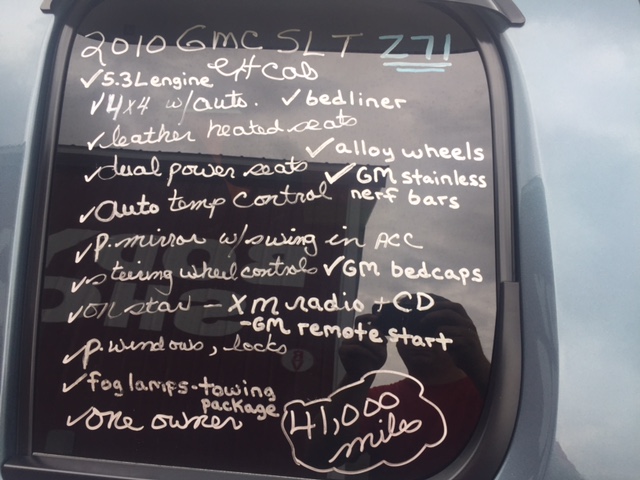 2010 GMC SLT Z71
ext cab
✓5.3L engine
✓4x4 w/auto. ✓bedliner
✓leather heated seats
✓alloy wheels
✓dual power seats ✓GM stainless
nerf bars
✓Auto temp control
✓p.mirror w/swing in ACC
✓steering wheel controls ✓GM bedcaps
✓on star - XM radio + CD
-GM remote start
✓p.windows, locks
✓fog lamps-towing
package
✓one owner
41,000
miles